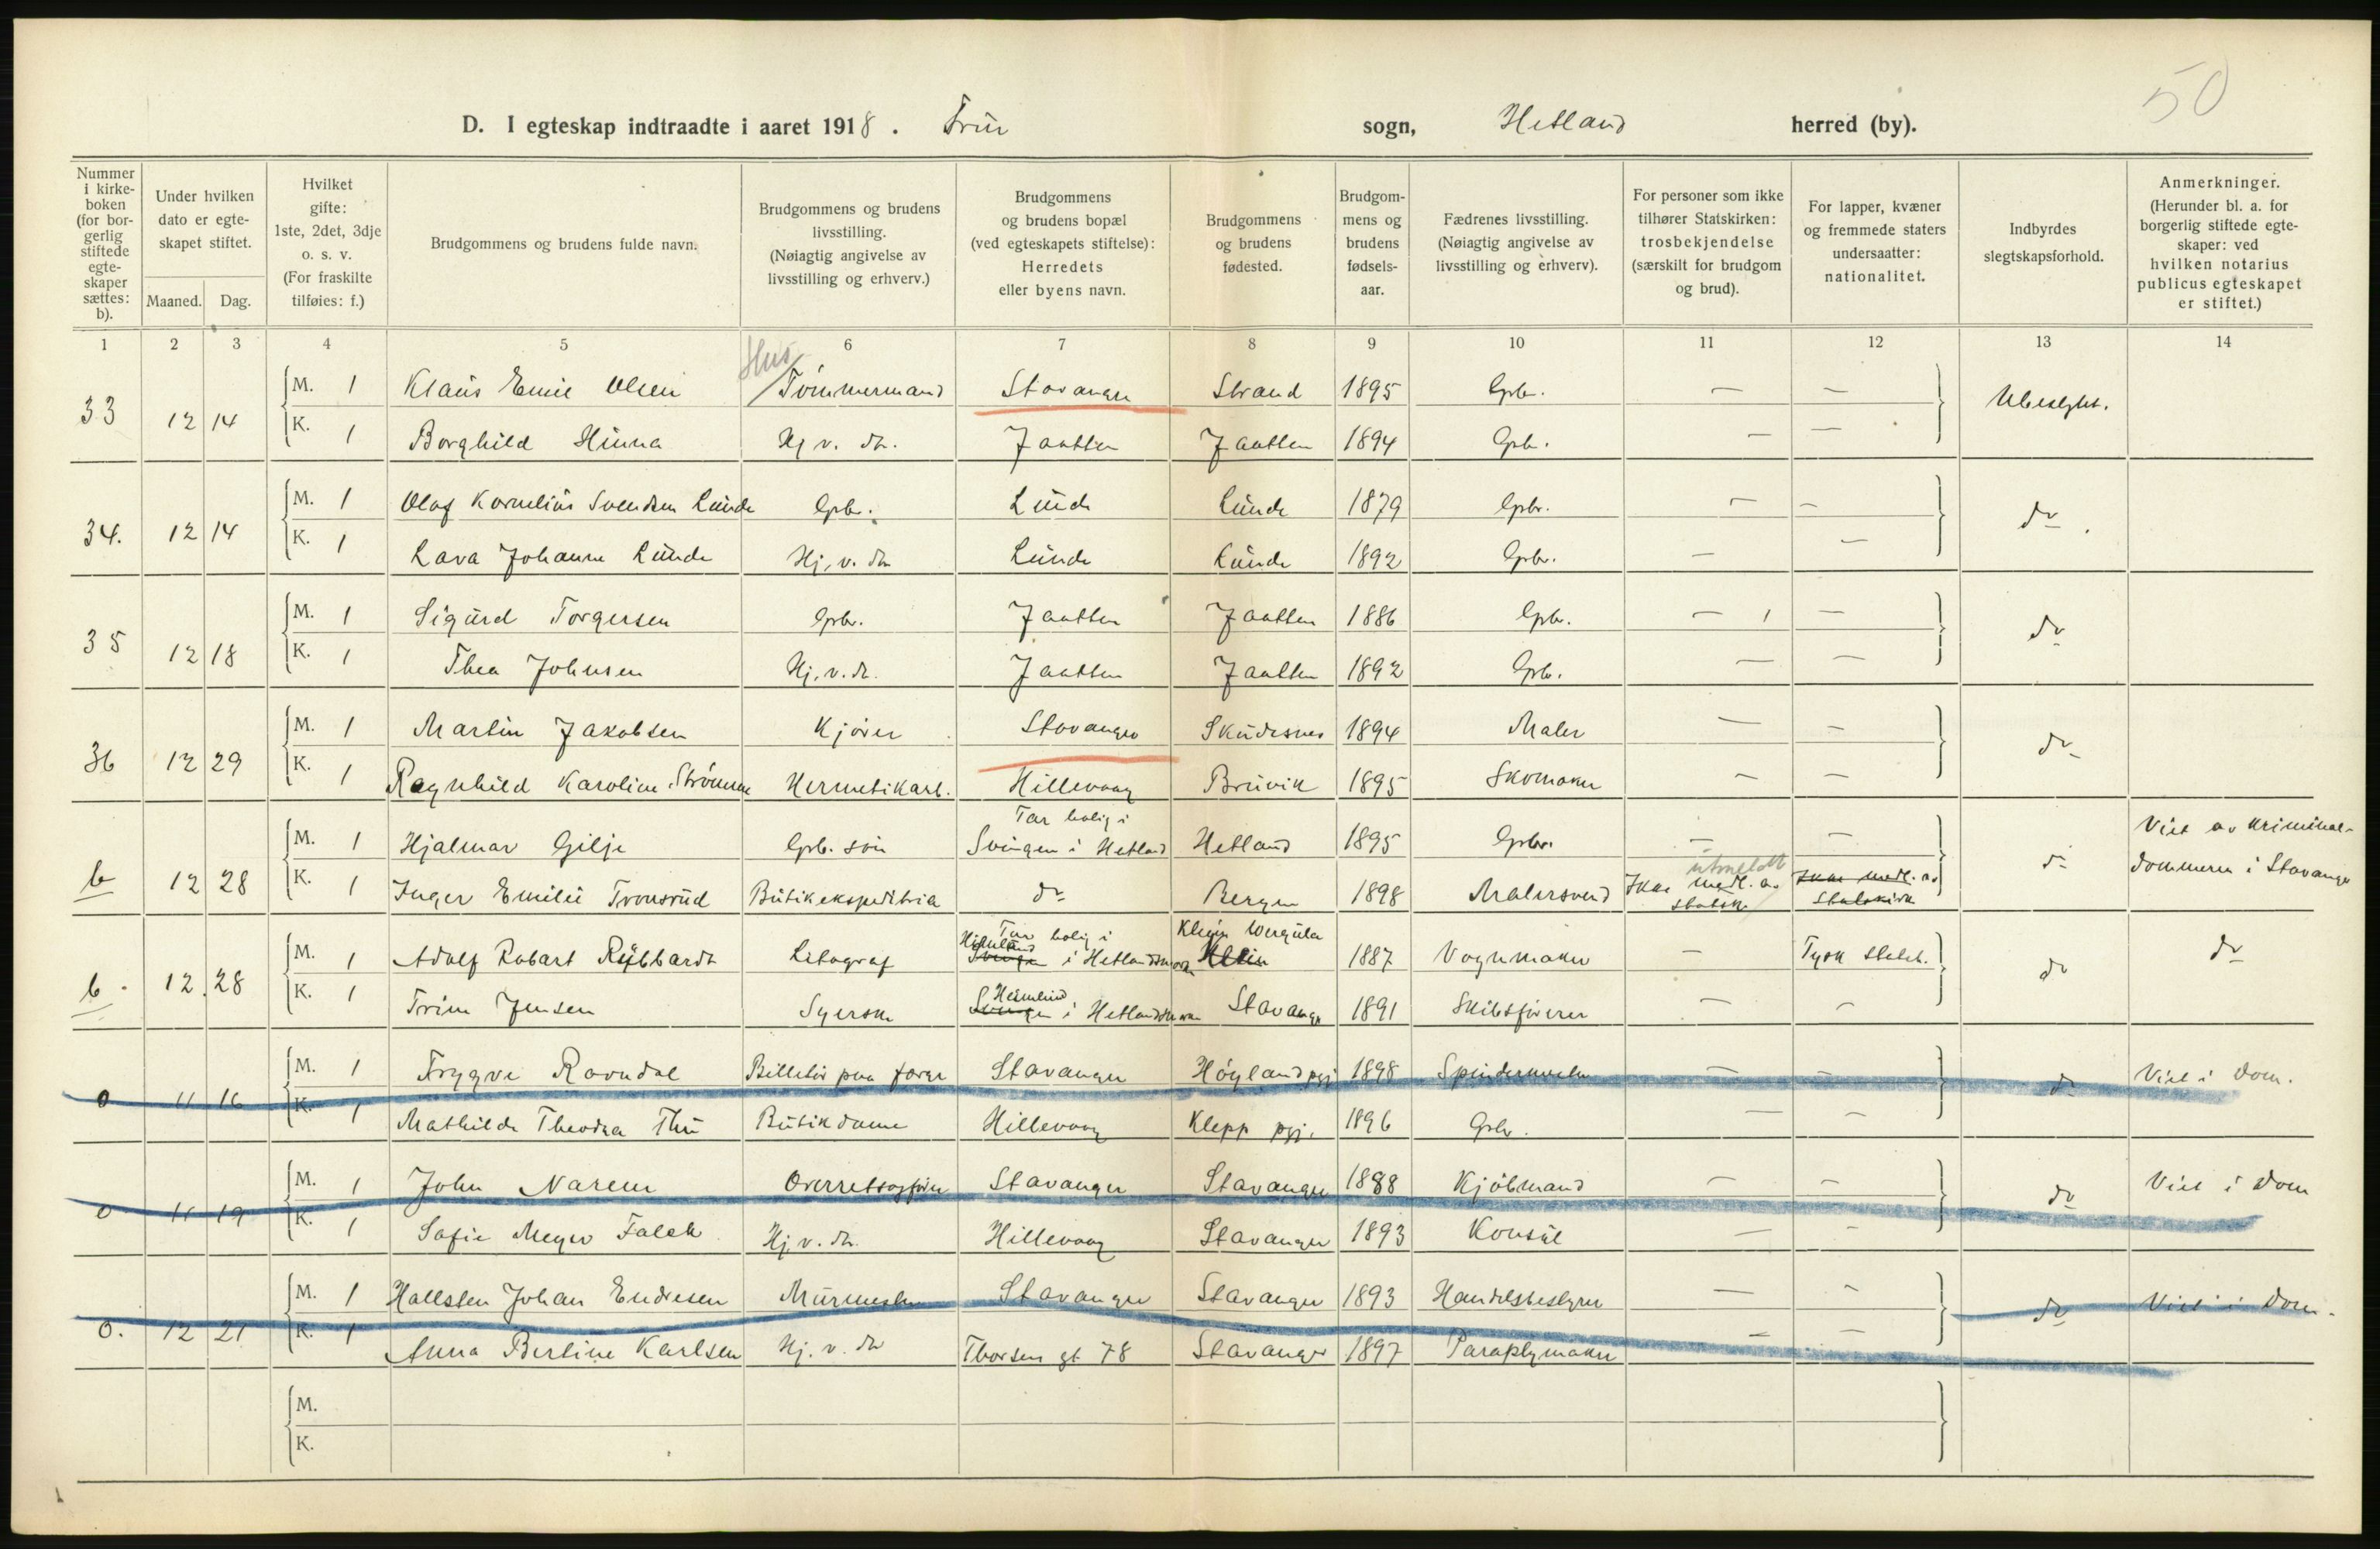 50
D. I egteskap indtraadte i aaret 1918. Frue sogn, Hetland herred (by).
Nummer i kirke-boken (for bor-gerlig stiftede egte-skaper sættes: b).
Under hvilken dato er egte-skapet stiftet. Maaned. Dag.
Hvilket gifte: 1ste, 2det, 3dje o. s. v. (For fraskilte tilføies: f.)
Brudgommens og brudens fulde navn.
Brudgommens og brudens livsstilling. (Nøiagtig angivelse av livsstilling og erhverv.)
Brudgommens og brudens bopæl (ved egteskapets stiftelse): Herredets eller byens navn.
Brudgommens og brudens fødested.
Brudgom-mens og brudens fødsels-aar.
Fædrenes livsstilling. (Nøiagtig angivelse av livsstilling og erhverv).
For personer som ikke tilhører Statskirken: trosbekjendelse (særskilt for brudgom og brud).
For lapper, kvæner og fremmede staters undersaatter: nationalitet.
Indbyrdes slegtskapsforhold.
Anmerkninger. (Herunder bl. a. for borgerlig stiftede egte-skaper: ved hvilken notarius publicus egteskapet er stiftet.)
1 2 3 4 5 6 7 8 9 10 11 12 13 14
33 12 14 M. 1 Klaus Emil Olsen Hus Tömmermand Stavanger Strand 1895 Gbr. — — Ubeslegtet.
K. 1 Borghild Hinna Hj. v. do. Jaatten Jaatten 1894 Gbr. — —
34. 12 14 M. 1 Olaf Kornelius Svendsen Lunde Gbr. Lunde Lunde 1879 Gbr. — — do.
K. 1 Lava Johanne Lunde Hj. v. do Lunde Lunde 1892 Gbr. — —
35 12 18 M. 1 Sigurd Torgersen Gbr. Jaatten Jaatten 1886 Gbr. — — do
K. 1 Thea Johnsen Hj. v. do. Jaatten Jaatten 1892 Gbr. — —
36 12 29 M. 1 Martin Jakobsen Kjører Stavanger Skudesnes 1894 Maler — — do
K. 1 Ragnhild Karoline Strömme Hermetikarb. Hillevaag Bruvik 1895 Skomaker — —
b 12 28 M. 1 Hjalmar Gilje Gbr. sön Tar bolig i Svingen i Hetland Hetland 1895 Gbr. — — do Viet av Kriminal-
K. 1 Inger Emilie Tronsrud Butikekspeditrice do Bergen 1898 Malersvend Ikke medl. av statsk. utmeldt Ikke medl. av Statskirk dommeren i Stavanger
b. 12 28 M. 1 Adolf Robert Litograf Tar bolig i i Hetland Klein 1887 Vognmaker — Tysk Statsb. do do
K. 1 Trine Jensen Syerske i Hetland Stavanger 1891 Skibsförer — —
0 11 16 M. 1 Trygve Ravndal Billetör paa færge Stavanger Höyland pgj 1898 Spinderimester — — do Viet i Dom.
K. 1 Mathilde Theodora Thu Butikdame Hillevaag Klepp pgj. 1896 Gbr. — —
0 11 19 M. 1 John Overretssagförer Stavanger Stavanger 1888 Kjöbmand — — do Viet i Dom
K. 1 Sofie Meyer Falck Hj. v. do. Hillevaag Stavanger 1893 Konsul — —
0. 12 21 M. 1 Hallsten Johan Endresen Murmester Stavanger Stavanger 1893 Handelsbestyrer — — do Viet i Dom.
K. 1 Anna Bertine Karlsen Hj. v. do Thorsens gt 78 Stavanger 1897 Paraplymaker — —
M.
K.